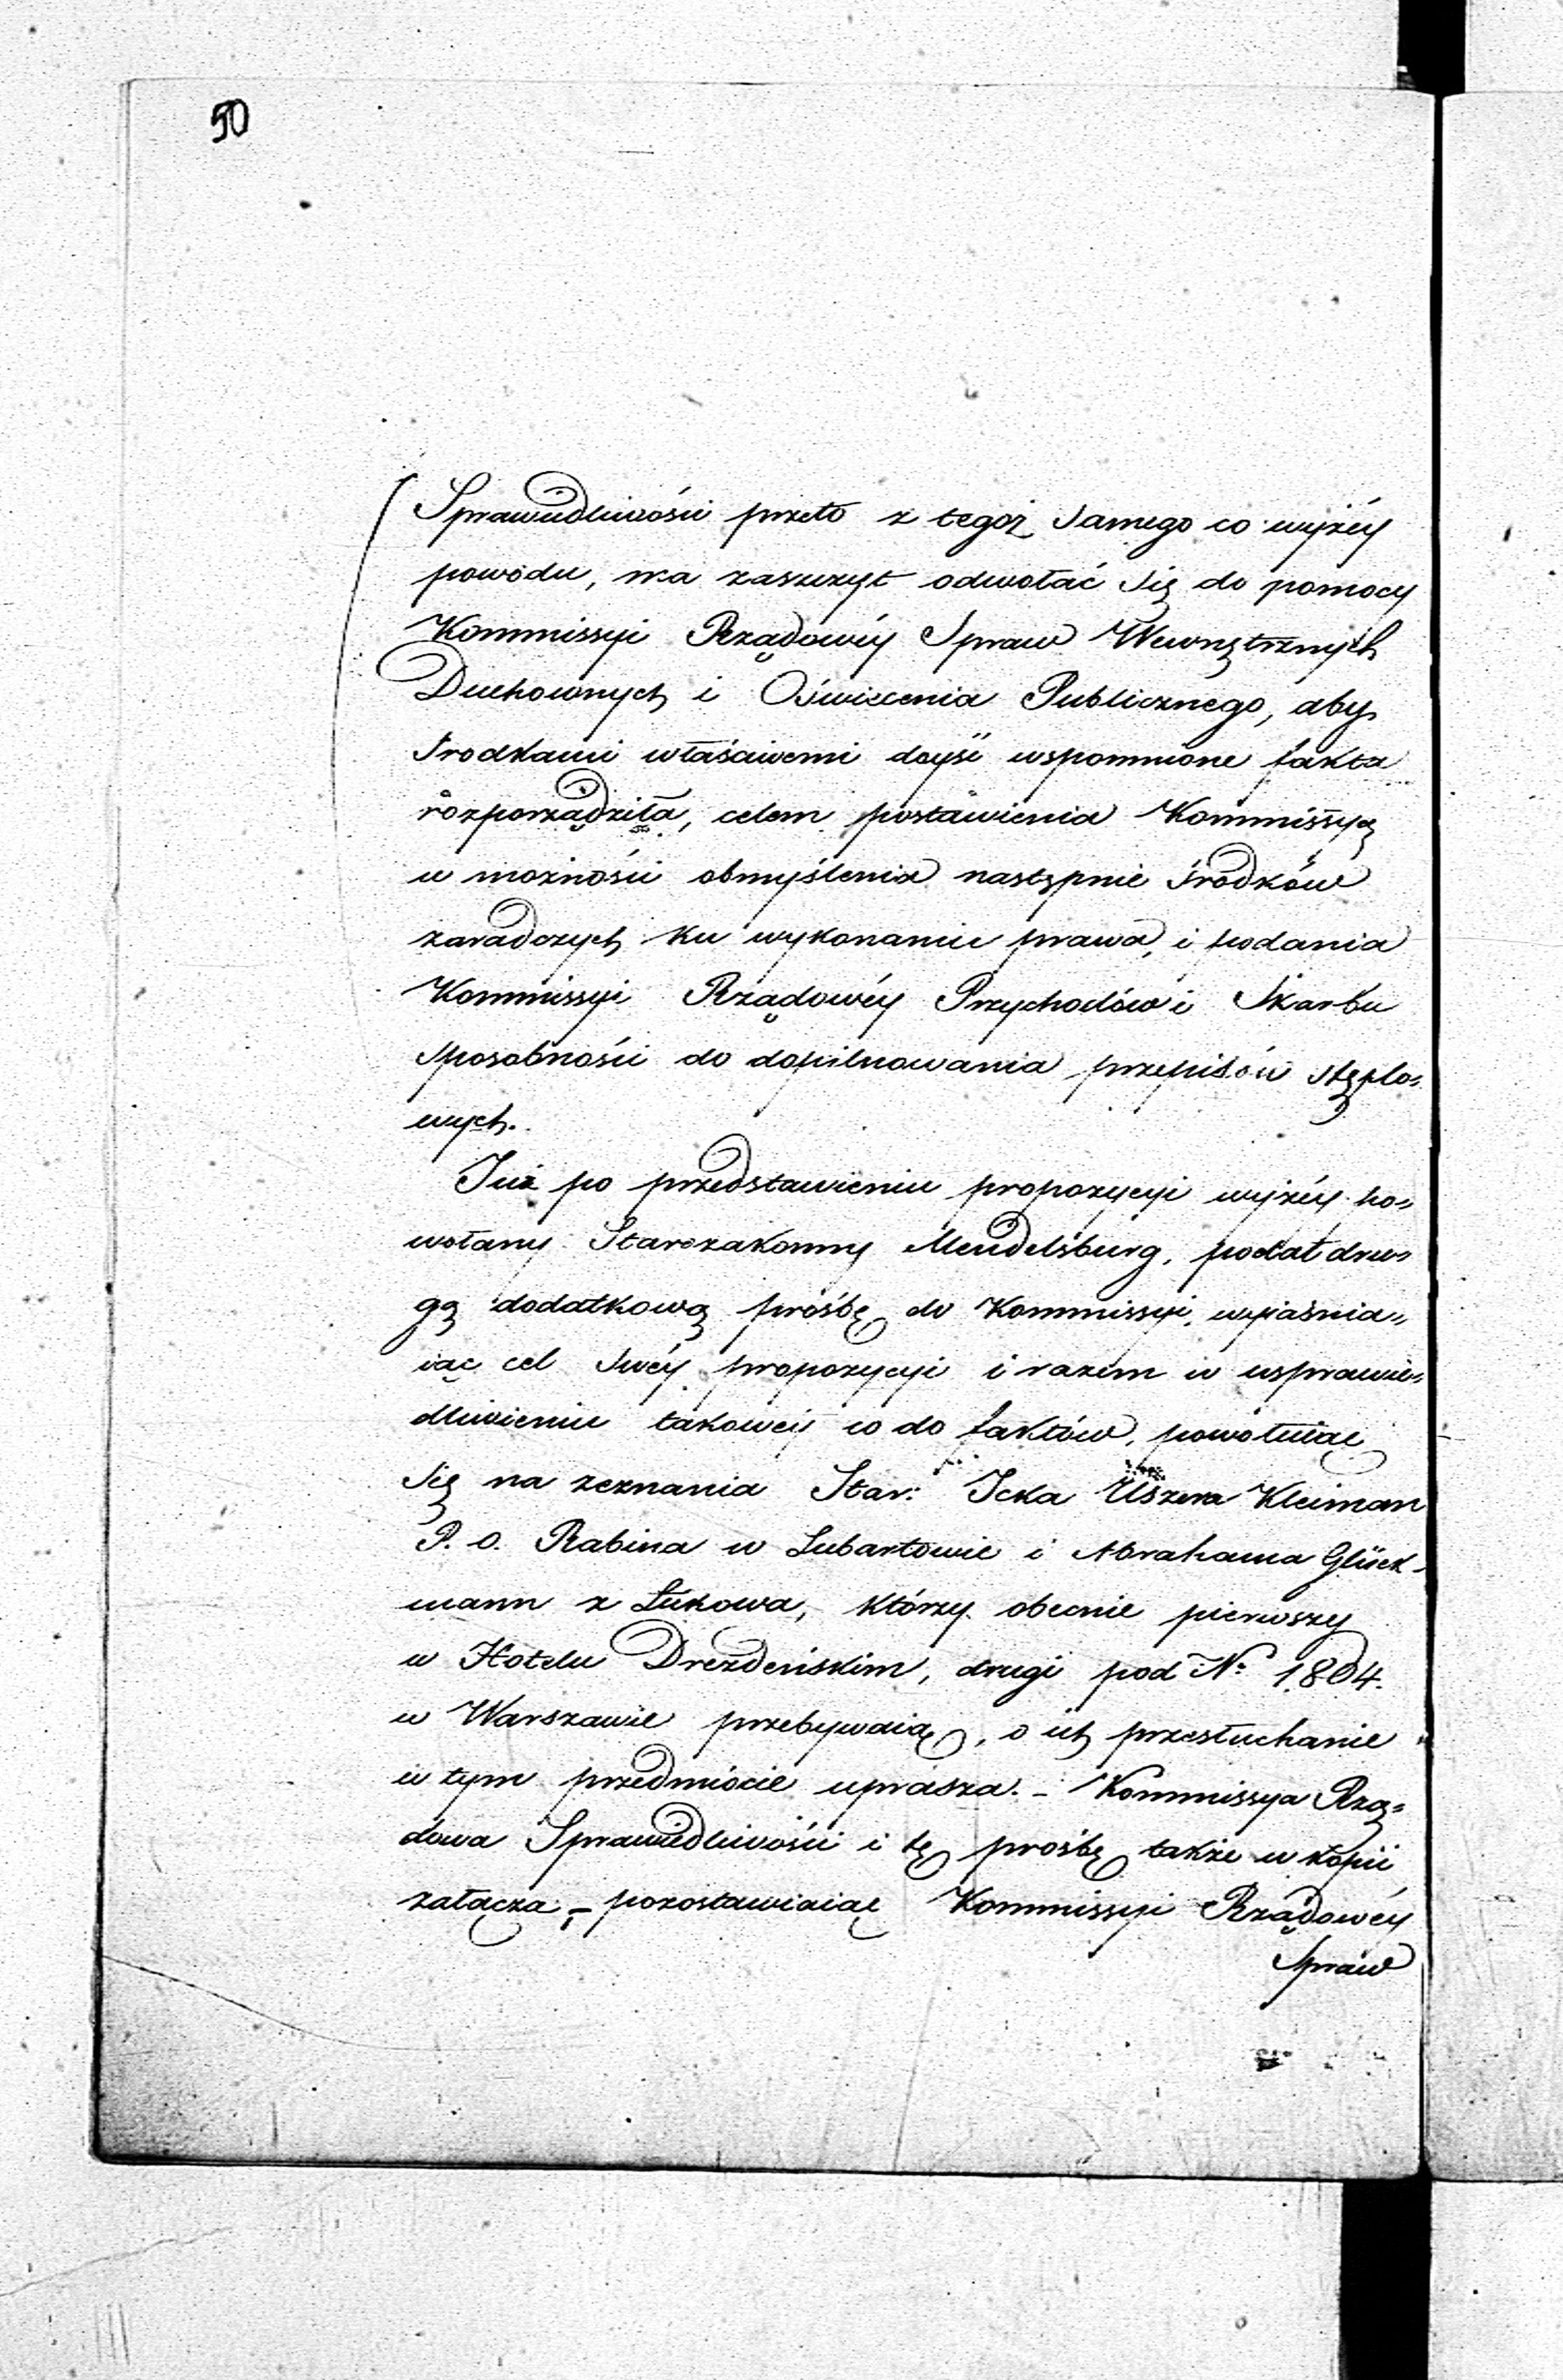 50
Sprawiedliwości przeto z tegoż samego co wyżéy
powodu, ma zaszczyt odwołać się do pomocy
Kommissyi Rządowéy Spraw Wewnętrznych
Duchownych i Oświecenia Publicznego, aby
środkami właściwemi doyść wspomnione fakta
rozporządziła, celem postawienia Kommissyą
w możności obmyślenia następnie środków
zaradczych ku wykonaniu prawa, i podania
Kommissyi Rządowéy Przychodów i Skarbu
sposobności do dopilnowania przepisów stęplo=
wych.
Już po przedstawieniu propozycyi wyżéy po=
wołany Starozakonny Mendelsburg, podał dru=
gą dodatkową prośbę do Kommissyi, wyiaśnia=
iąc cel swéy propozycyi i razem w usprawie=
dliwieniu takowéy co do faktów, powołuiąc
się na zeznania Star: Icka Uszera Kleiman
P. O. Rabina w Lubartowie i Abrahama Glück-
mann z Łukowa, którzy obecnie pierwszy
w Hotelu Drezdeńskim, drugi pod Nº 1804.
w Warszawie przebywaią, o ich przesłuchanie
w tym przedmiocie uprasza. - Kommissya Rzą=
dowa Sprawiedliwości i tę prośbę także w kopii
załącza, - pozostawiaiąc Kommissyi Rządowéy
Spraw